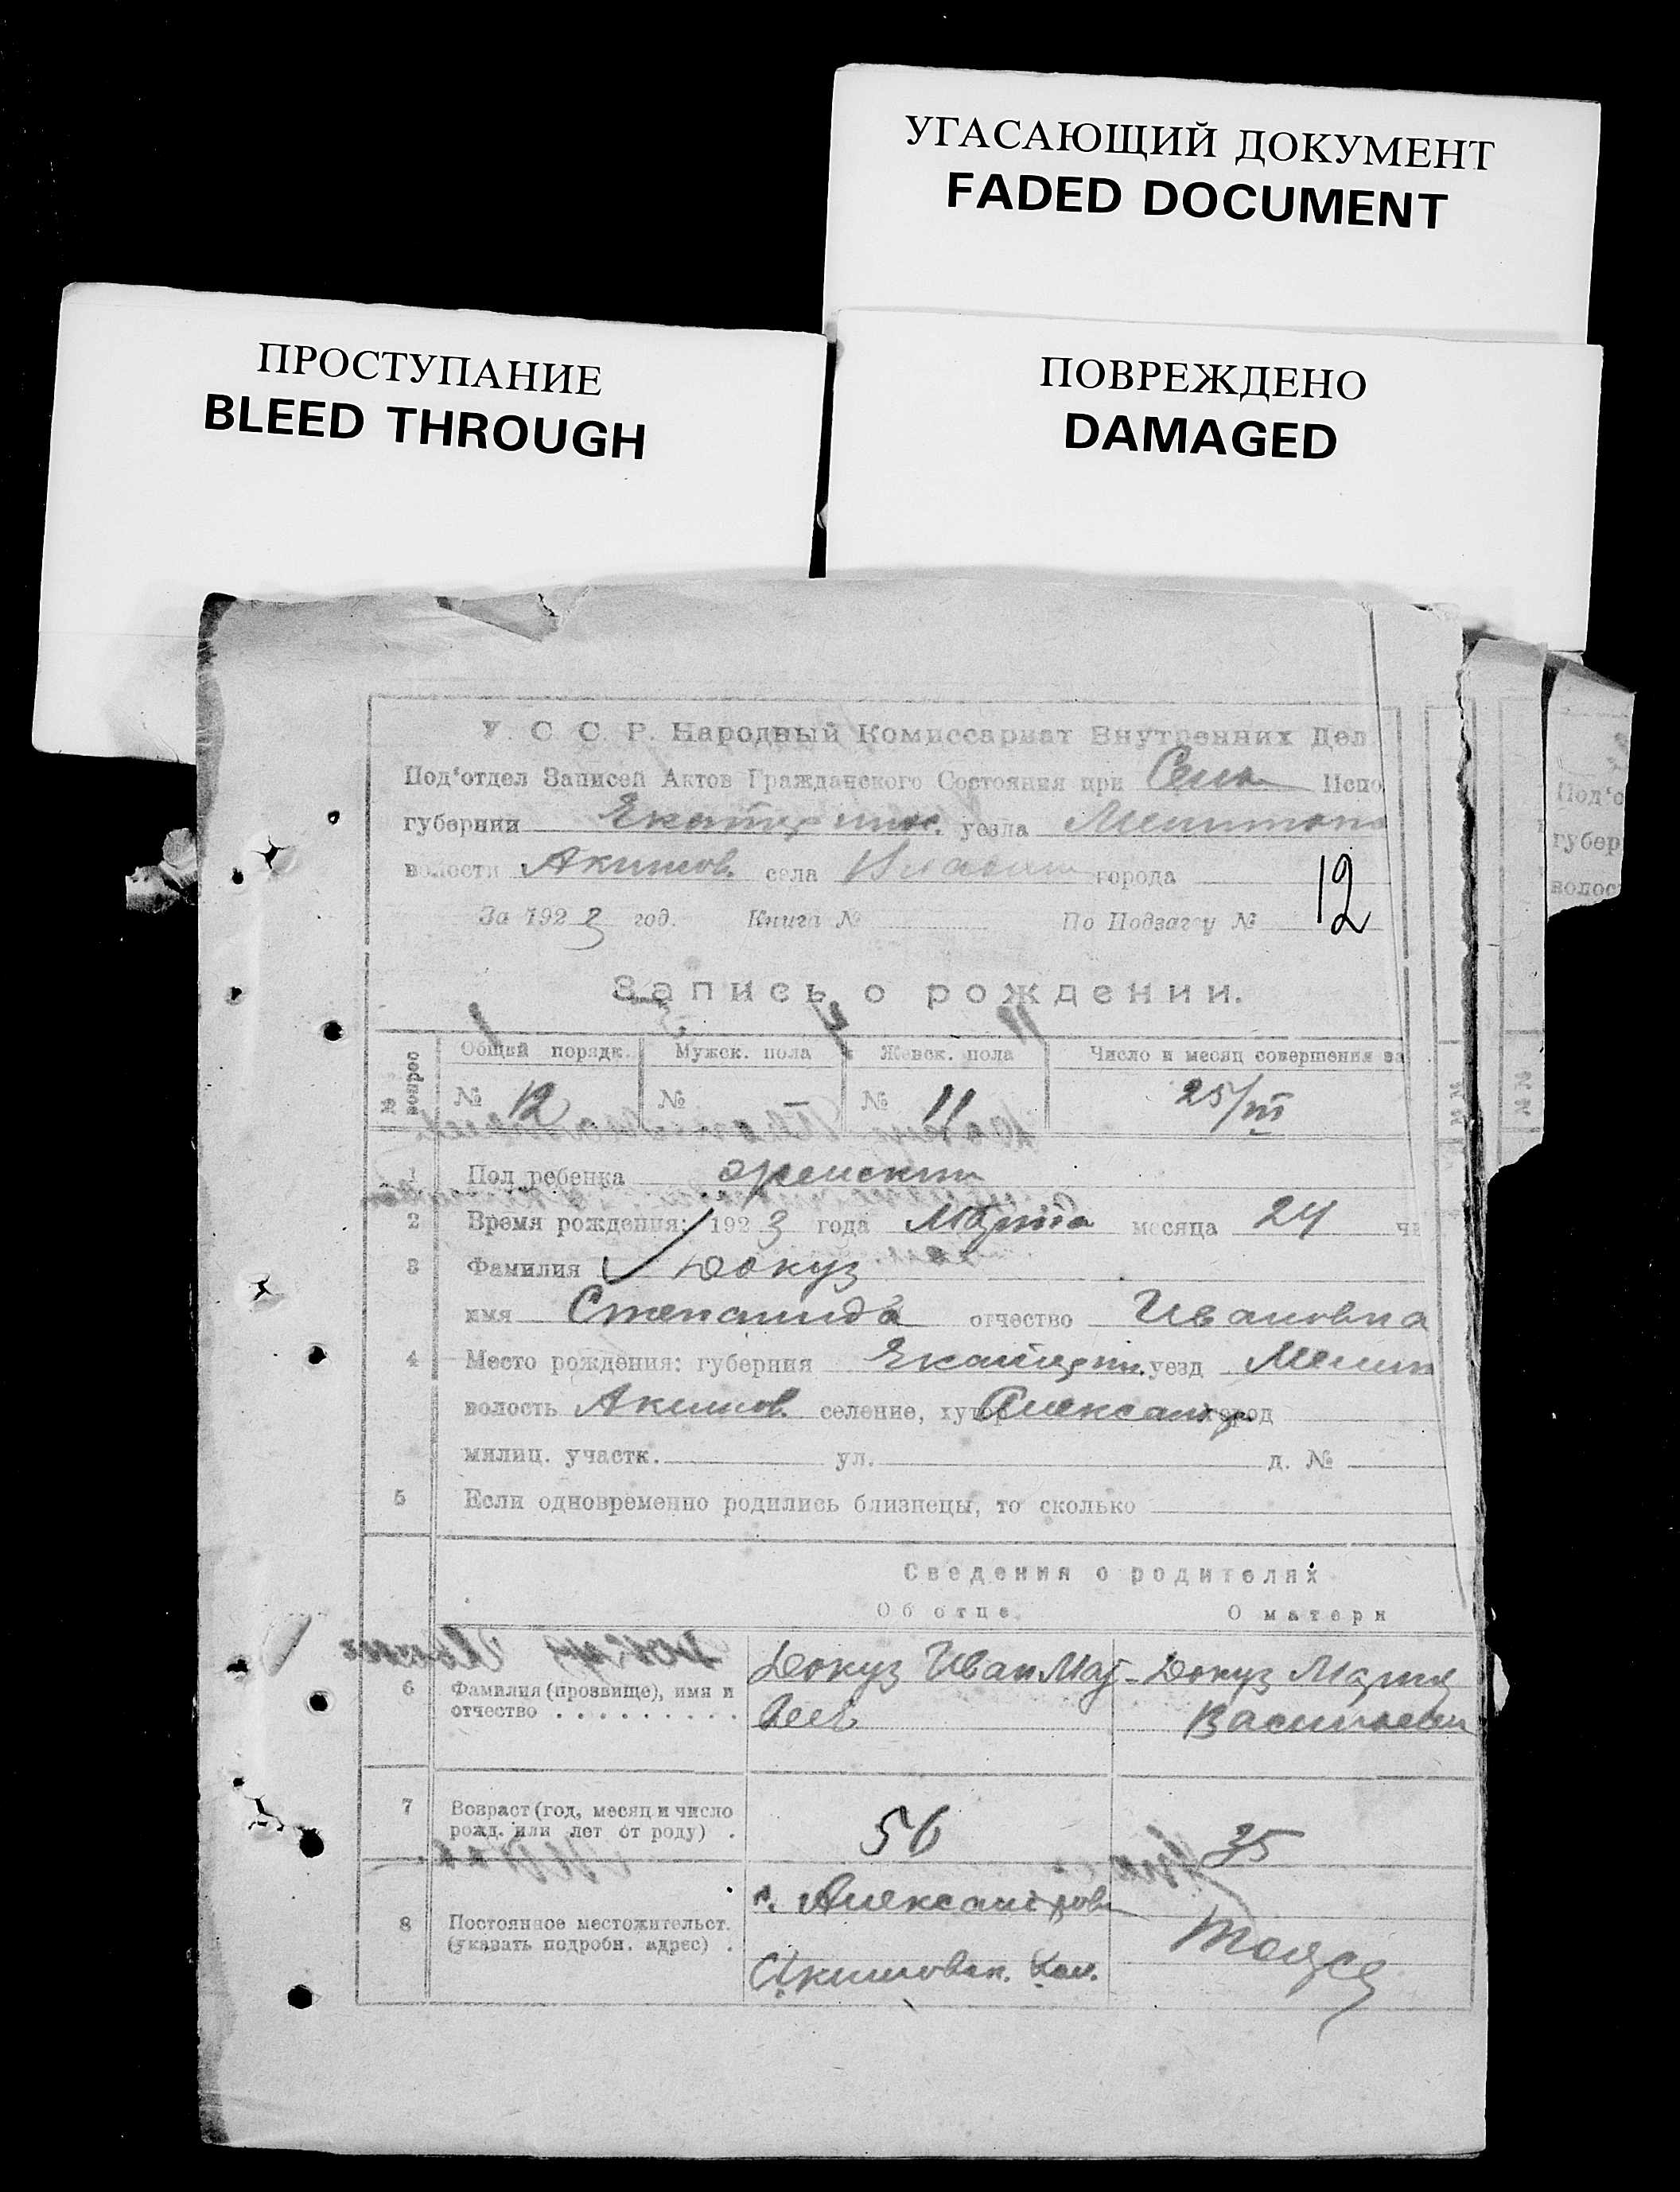 УГАСАЮЩИЙ ДОКУМЕНТ
FADED DOCUMENT
ПРОСТУПАНИЕ
BLEED THROUGH
ПОВРЕЖДЕНО
DAMAGED
У. С. С. Р. Народный Комиссариат Внутренних Дел
Под‘отдел Записей Актов Гражданского Состояния при Сель Испо
губернии Екатерин. уезда Мелитопо
волости Акимов. села города
За 1923 год. Книга № По Подзагсу № 12
Запись о рождении.
№ вопрос Общий порядк. Мужск. пола Женск. пола Число и месяц совершения за
№ 12 № № 11 25/III
1 Пол ребенка женский
2 Время рождения: 1923 года Марта месяца 24 чи
3 Фамилия Докуз
имя Степанида отчество Ивановна
4 Место рождения: губерния Екатерин. уезд Мелит
волость Акимов. селение, хутор Александр город
милиц. участк. ул. д. №
5 Если одновременно родились близнецы, то сколько
Сведения о родителях
Об отце. О матери
6 Фамилия (прозвище), имя и отчество . . . . . . . . . Докуз Иван Мат- Докуз Мария
Васильевн
7 Возраст (год, месяц и число рожд. или лет от роду) . 56 35
8 Постоянное местожительст. (указать подробн. адрес) . с. Александровк
Акимовск. Вол.
Под‘о
губер
волос
№ №
№ №